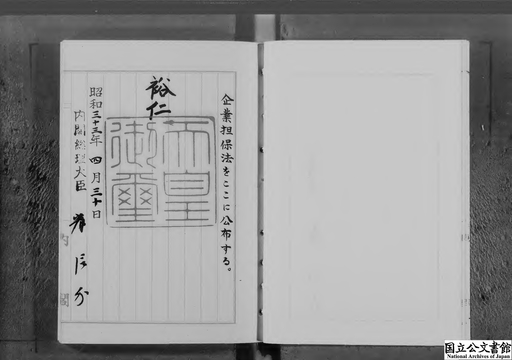 企業担保法をここに公布する。
裕仁
天皇
御璽
昭和三十三年四月三十日
内閣総理大臣 岸信介
内閣
国立公文書館
National Archives of Japan